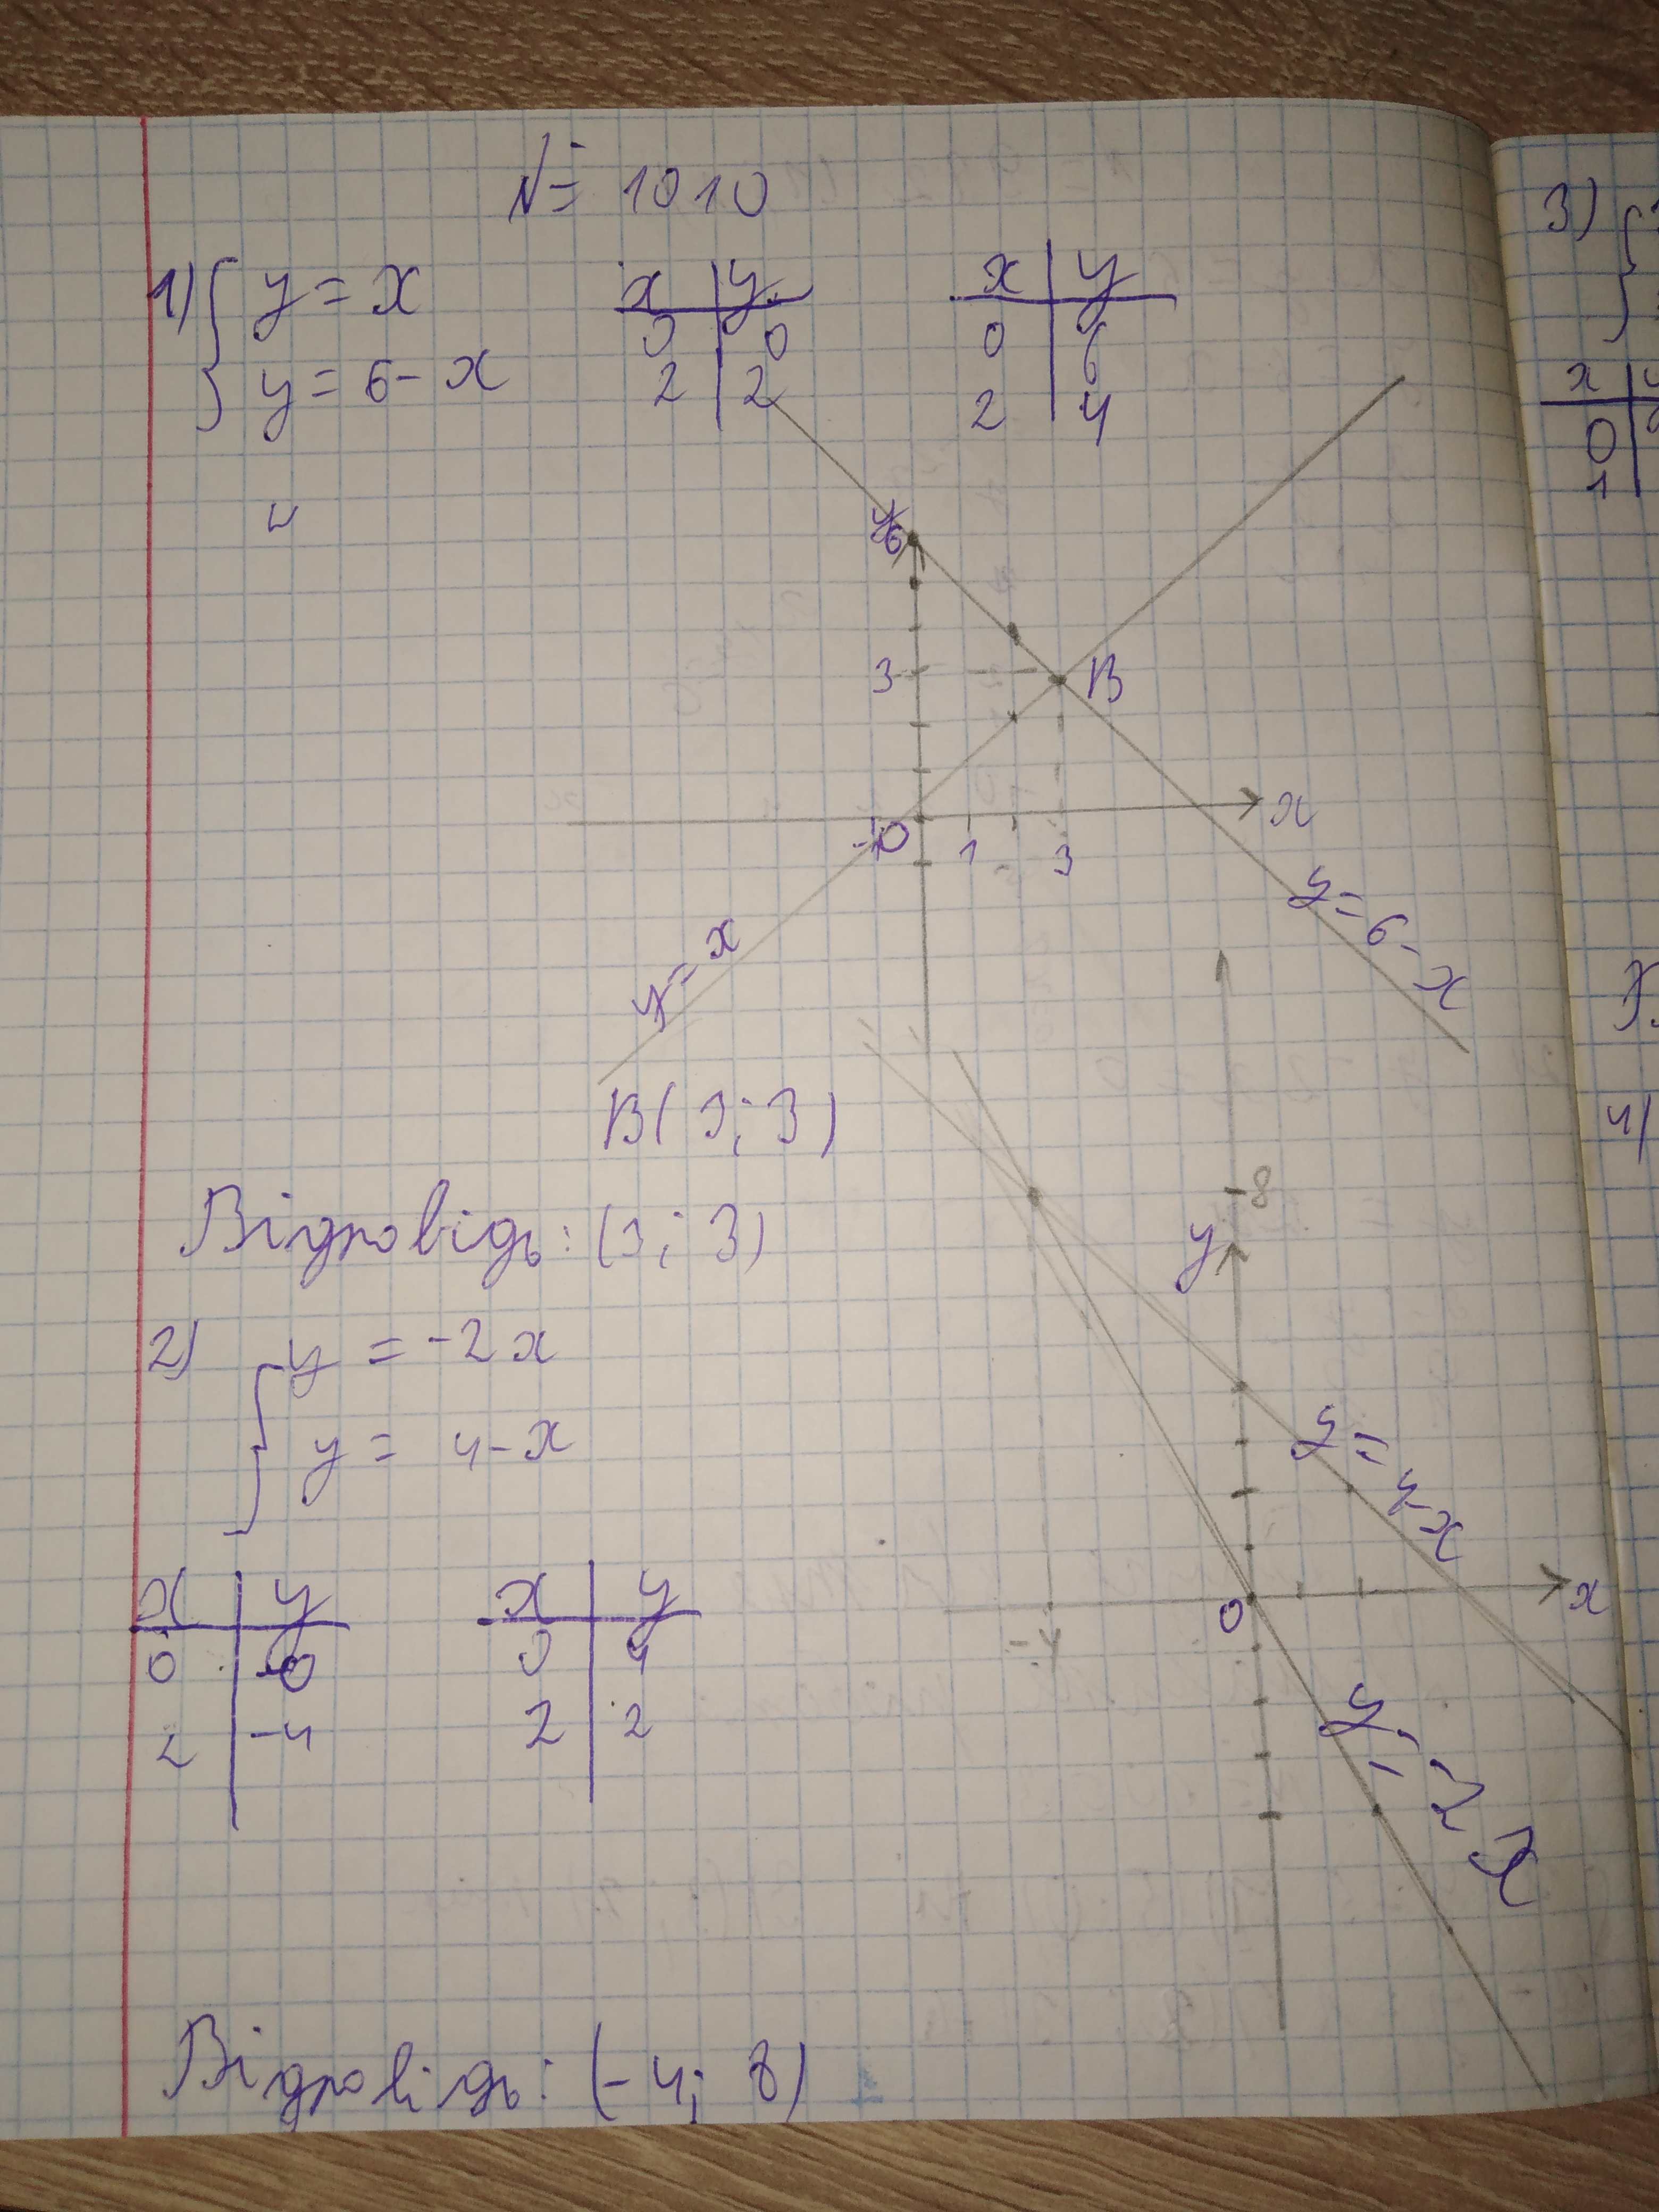 № 1010
1) { y = x
y = 6 - x
x | y
0 | 0
2 | 2
x | y
0 | 6
2 | 4
y
6
3
B
x
0
1
3
y = 6 - x
y = x
B(3; 3)
Відповідь: (3; 3)
2) { y = -2x
y = 4 - x
x | y
0 | 0
2 | -4
x | y
0 | 4
2 | 2
8
y
y = 4 - x
x
0
-4
y = -2x
Відповідь: (-4; 8)
3) {
x | y
0
1
4)